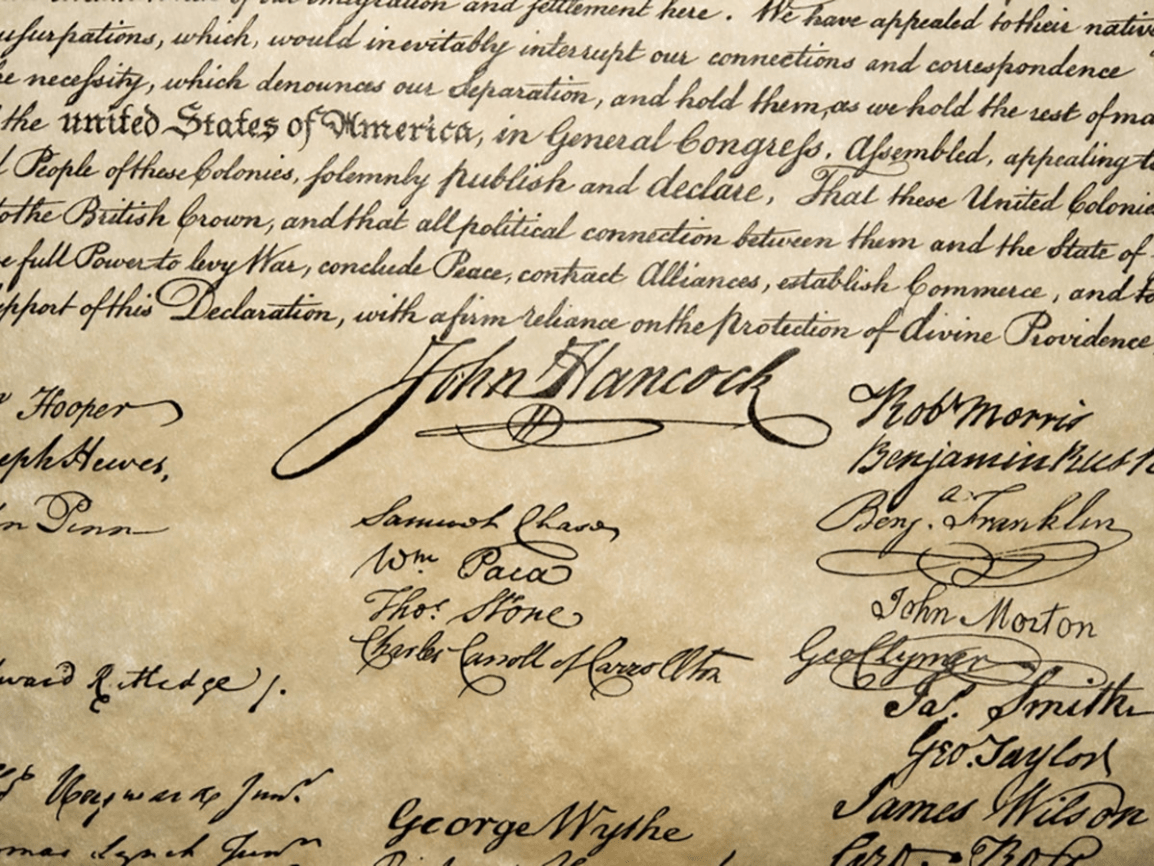 of our emigration and settlement here. We have appealed to their nativ
usurpations, which, would inevitably interrupt our connections and correspondence
e necessity, which denounces our Separation, and hold them, as we hold the rest of ma
the united States of America, in General Congress, Assembled, appealing to
People of these Colonies, solemnly publish and declare, That these United Colonie
to the British Crown, and that all political connection between them and the State of
e full Power to levy War, conclude Peace, contract Alliances, establish Commerce, and to
upport of this Declaration, with a firm reliance on the Protection of divine Providence
John Hancock
Hooper
eph Hewes,
n Penn
ward Rutledge /.
Heyward Junr.
mas Lynch Junr
Samuel Chase
Wm Paca
Thos. Stone
Charles Carroll of Carrollton
George Wythe
Robt Morris
Benjamin Rush
Benj. Franklin
John Morton
Geo Clymer
Jas. Smith
Geo. Taylor
James Wilson